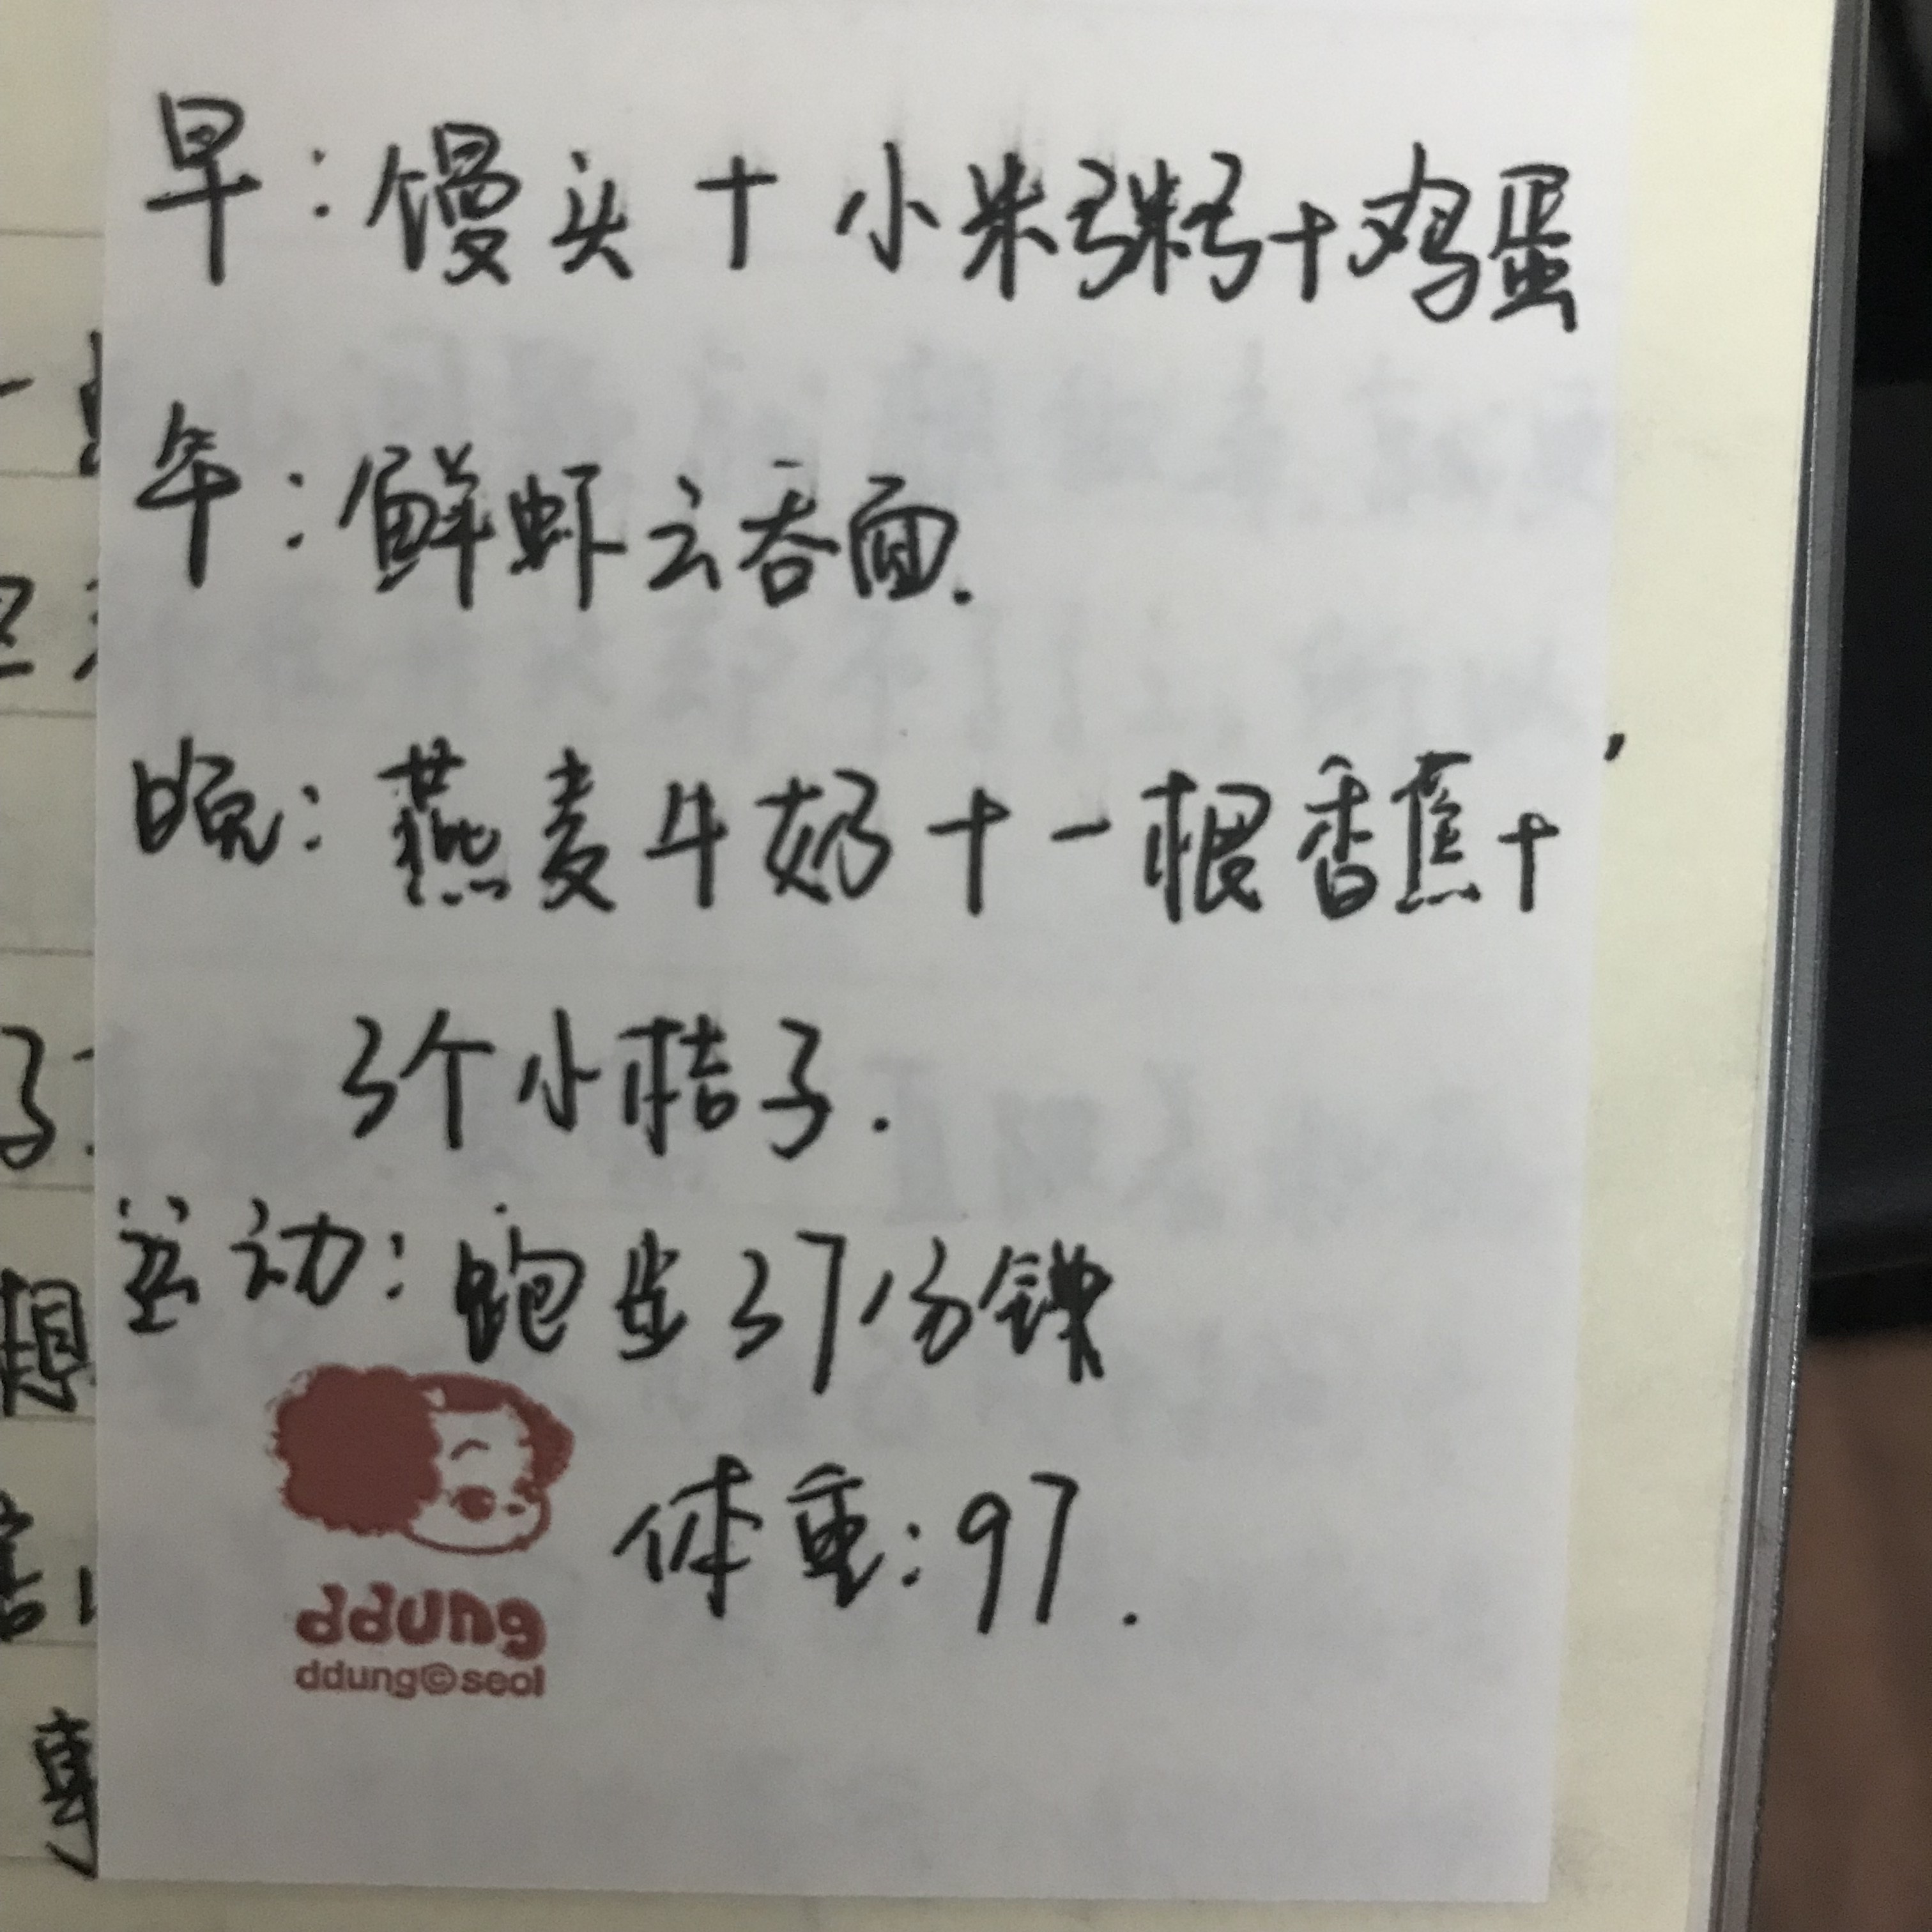 早：馒头+小米粥+鸡蛋
午：鲜虾云吞面.
晚：燕麦牛奶+一根香蕉+
3个小桔子.
运动：跑步37分钟
体重：97.
ddung
ddung©seol